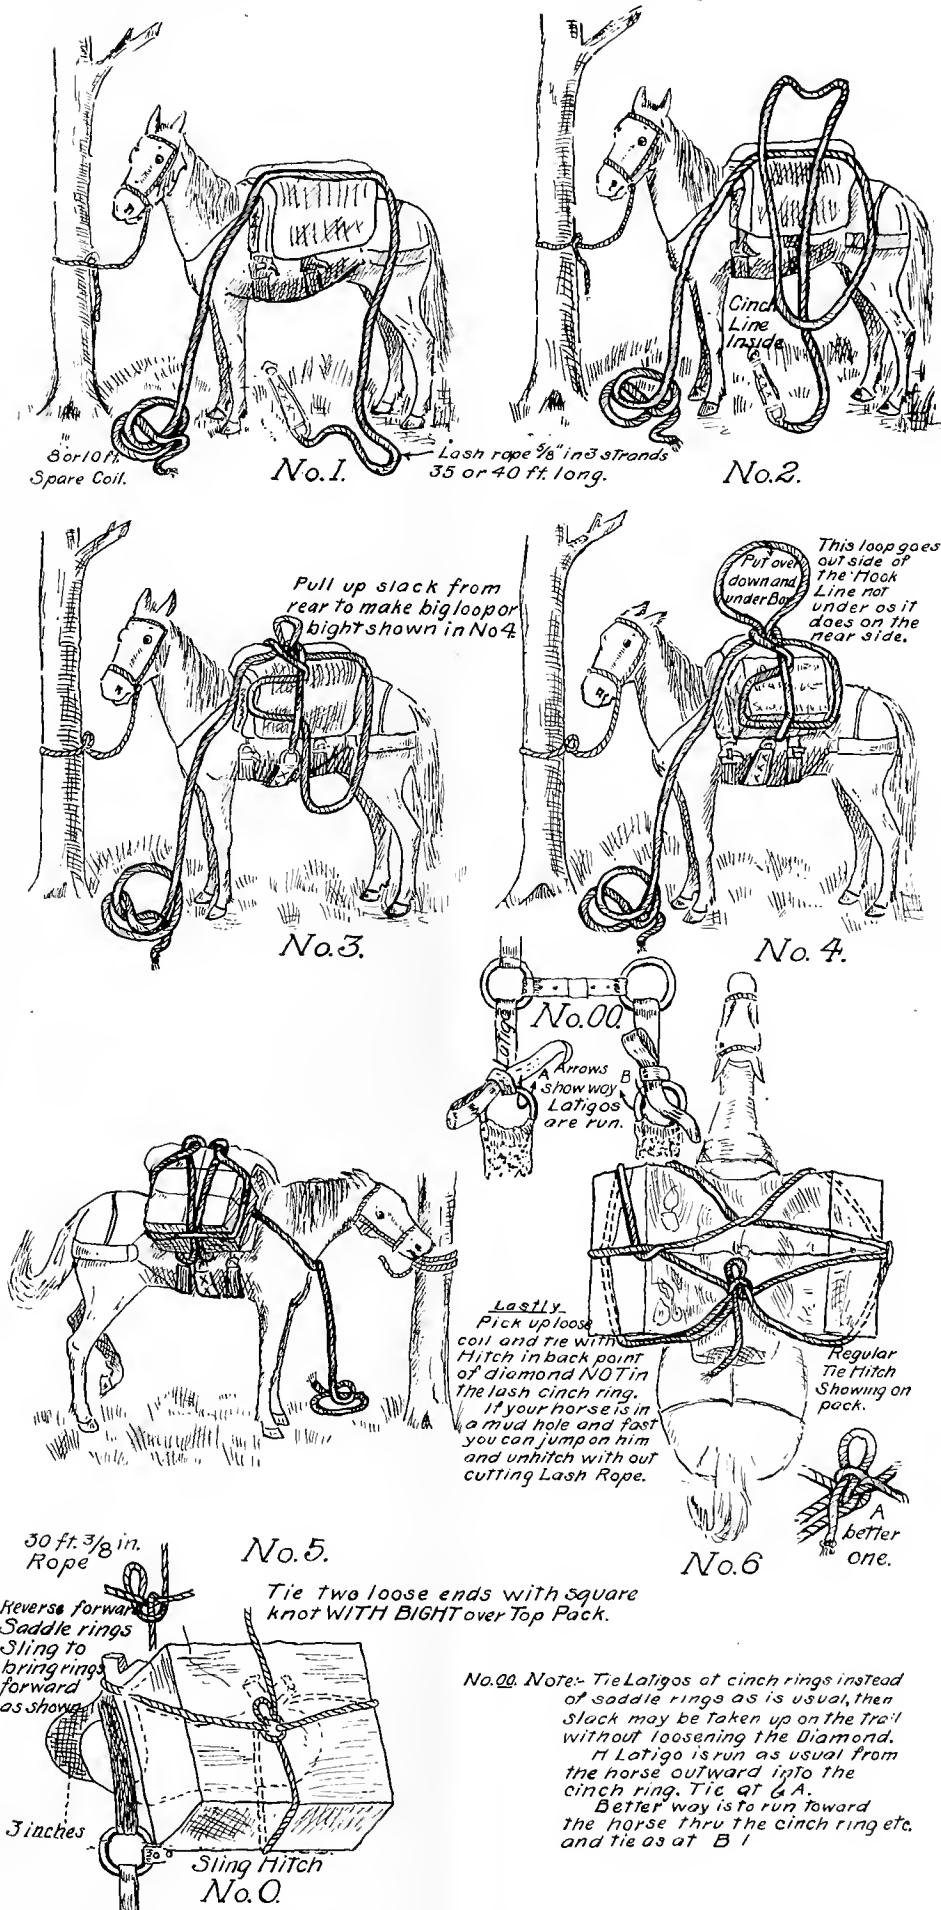 8 or 10 ft.
Spare Coil.
No.1.
Lash rope 5/8" in 3 strands
35 or 40 ft. long.
Cinch
Line
Inside
No.2.
Pull up slack from
rear to make big loop or
bight shown in No 4
No.3.
Put over
down and
under Box
This loop goes
out side of
the Hook
Line not
under as it
does on the
near side.
No.4.
No.00.
Latigo
A
Arrows
show way
Latigos
are run.
B
Lastly
Pick up loose
coil and tie with
Hitch in back point
of diamond NOT in
the lash cinch ring.
If your horse is in
a mud hole and fast
you can jump on him
and unhitch with out
cutting Lash Rope.
Regular
Tie Hitch
Showing on
pack.
A
better
one.
No.6
30 ft. 3/8 in.
Rope
No.5.
Tie two loose ends with square
knot WITH BIGHT over Top Pack.
Reverse forward
Saddle rings
Sling to
bring rings
forward
as shown
3 inches
Sling Hitch
No.0.
No.00. Note:- Tie Latigos at cinch rings instead
of saddle rings as is usual, then
slack may be taken up on the trail
without loosening the Diamond.
A Latigo is run as usual from
the horse outward into the
cinch ring. Tie at & A.
Better way is to run toward
the horse thru the cinch ring etc.
and tie as at B !